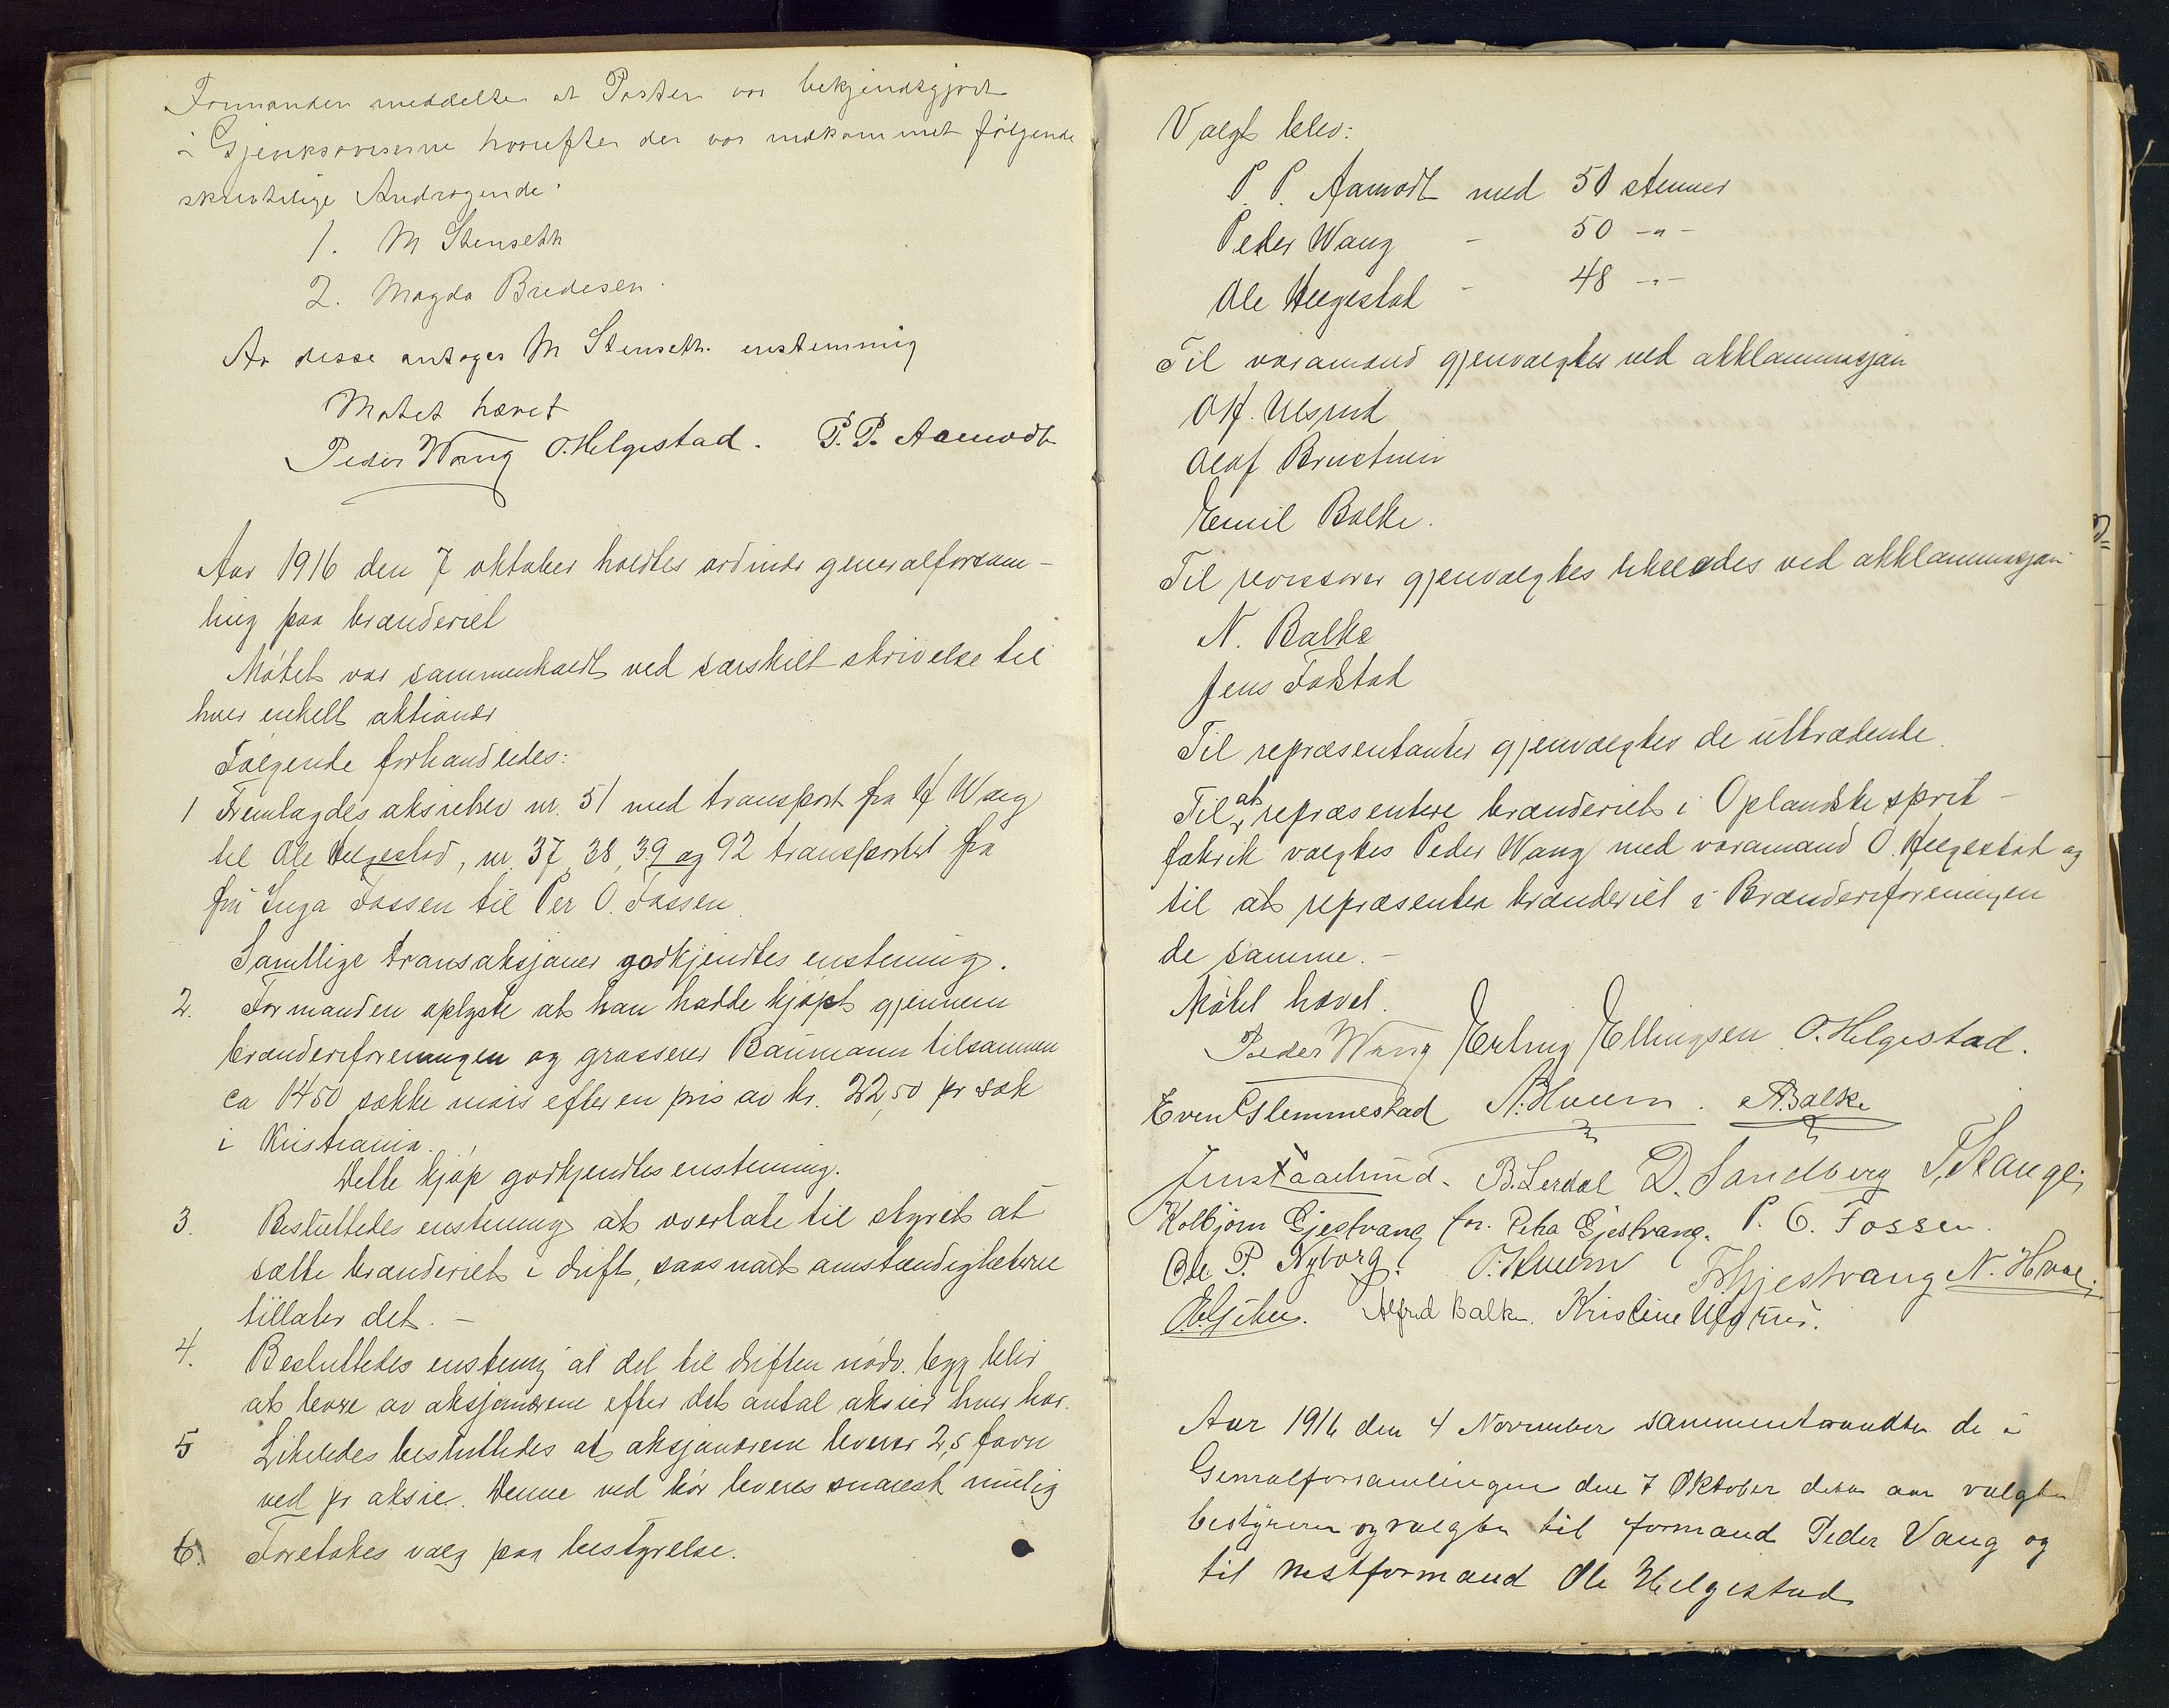 Formanden meddelte at Posten var bekjendtgjort
i Gjøviksaviserne hvorefter der var indkommet følgende
skriftelige Andragende:
1. M Stenseth
2. Magda Bredesen.
Av disse antages M Stenseth. enstemmig
Møtet hævet
Peder Wang O. Helgestad. P. P. Aamodt
Aar 1916 den 7 oktober holdtes ordinær generalforsam-
ling paa brænderiet
Møtet var sammenkaldt ved særskilt skrivelse til
hver enkelt aktionær
Følgende forhandledes:
1 Fremlagdes aksiebrev nr. 51 med transport fra H Wang
til Ole Helgestad, nr. 37, 38, 39 og 92 transportert fra
fra Inga Fossen til Per O. Fossen
Samtlige transaksjoner godkjendtes enstemig.
2. Formanden oplyste at han hadde kjøpt gjennem
brænderiforeningen og grosserer Baumann tilsammen
ca 1450 sække mais efter en pris av kr. 22,50 pr sæk
i Kristiania.
Dette kjøp godkjendtes enstemig.
3. Besluttedes enstemig at overlate til styret at
sætte brænderiet i drift, saasnart omstændigheterne
tillater det. -
4. Besluttedes enstemig at det til driften nødv. bygg blir
at levere av aksjonærene efter det antal aksier hver har.
5 Likeledes besluttedes at aksjonærene leverer 2,5 favn
ved pr aksie. Denne ved bør leveres snarest mulig
6. Foretokes valg paa bestyrelse.
Valgt blev:
P. P. Aamodt med 51 stemmer
Peder Wang - 50 -"-
Ole Helgestad - 48 -"-
Til varamænd gjenvalgtes ved akklamasjon
O. H. Ulsrud
Olaf Brustuen
Emil Balke.
Til revisorer gjenvalgtes likeledes ved akklamasjon
N. Balke
Jens Fodstad
Til repræsentanter gjenvalgtes de uttrædende.
Til at repræsentere brænderiet i Oplandske sprit-
fabrik valgtes Peder Wang med varamand O. Helgestad og
til at repræsentere brænderiet i Brænderiforeningen
de samme. -
Møtet hævet.
Peder Wang Erling Ellingsen O. Helgestad.
Even Slemmestad N. Hveem. A. Balke
B. Lerdal D. Sandberg
Kolbjørn Gjestvang for. Petra Gjestvang. P. O. Fossen.
Ole P. Nyborg. O. Hveem Gjestvang N. Hval.
Alfred Balke. Kristine Ulsrud.
Aar 1916 den 4 November sammentraadte de i
Generalforsamlingen den 7 Oktober dette aar valgte
bestyrere og valgte til formand Peder Vang og
til nestformand Ole Helgestad